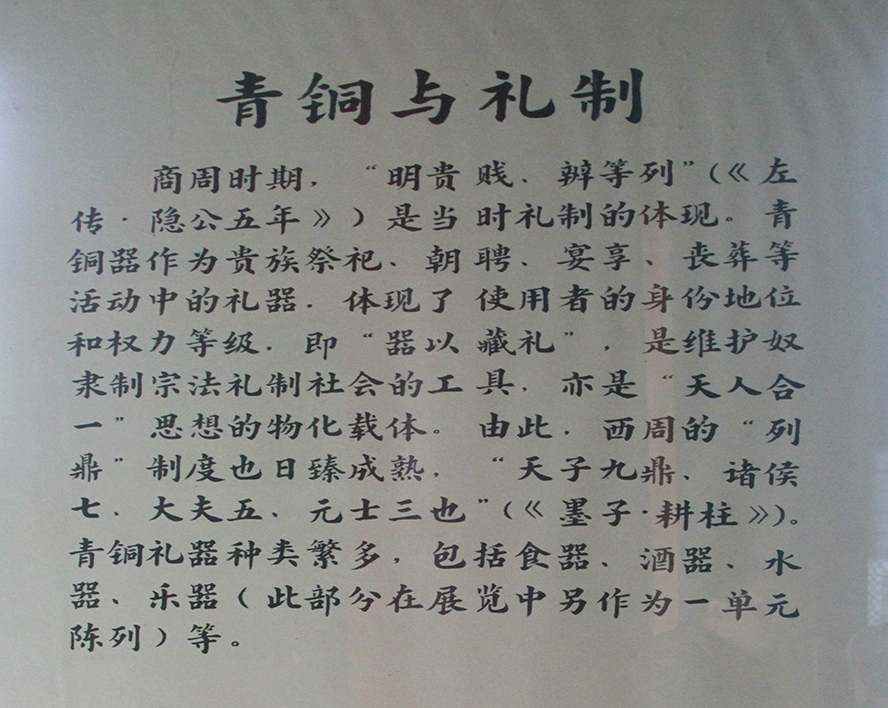 青铜与礼制
商周时期，“明贵贱、辨等列”（《左
传·隐公五年》）是当时礼制的体现。青
铜器作为贵族祭祀、朝聘、宴享、丧葬等
活动中的礼器，体现了使用者的身份地位
和权力等级，即“器以藏礼”，是维护奴
隶制宗法礼制社会的工具，亦是“天人合
一”思想的物化载体。由此，西周的“列
鼎”制度也日臻成熟，“天子九鼎、诸侯
七、大夫五、元士三也”（《墨子·耕柱》）。
青铜礼器种类繁多，包括食器、酒器、水
器、乐器（此部分在展览中另作为一单元
陈列）等。